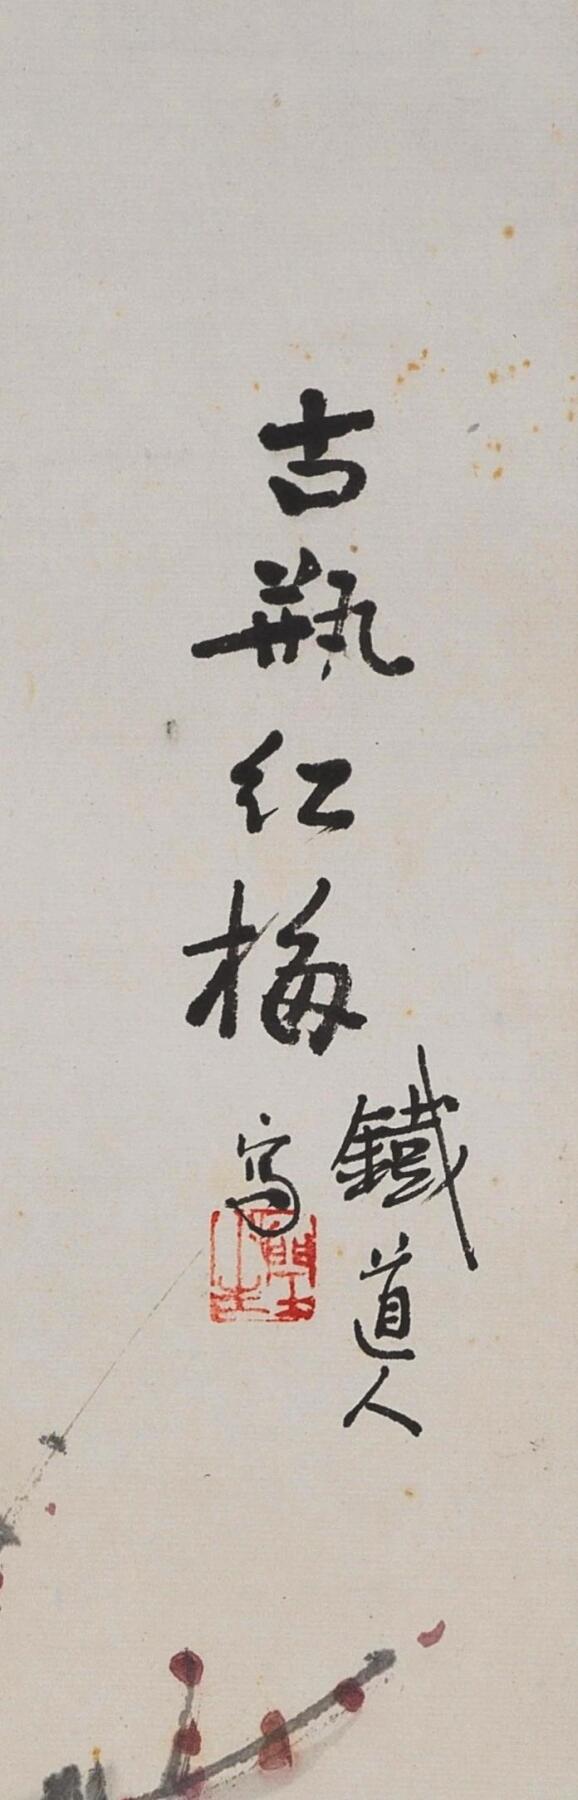 古瓶红梅
鐵道人
写